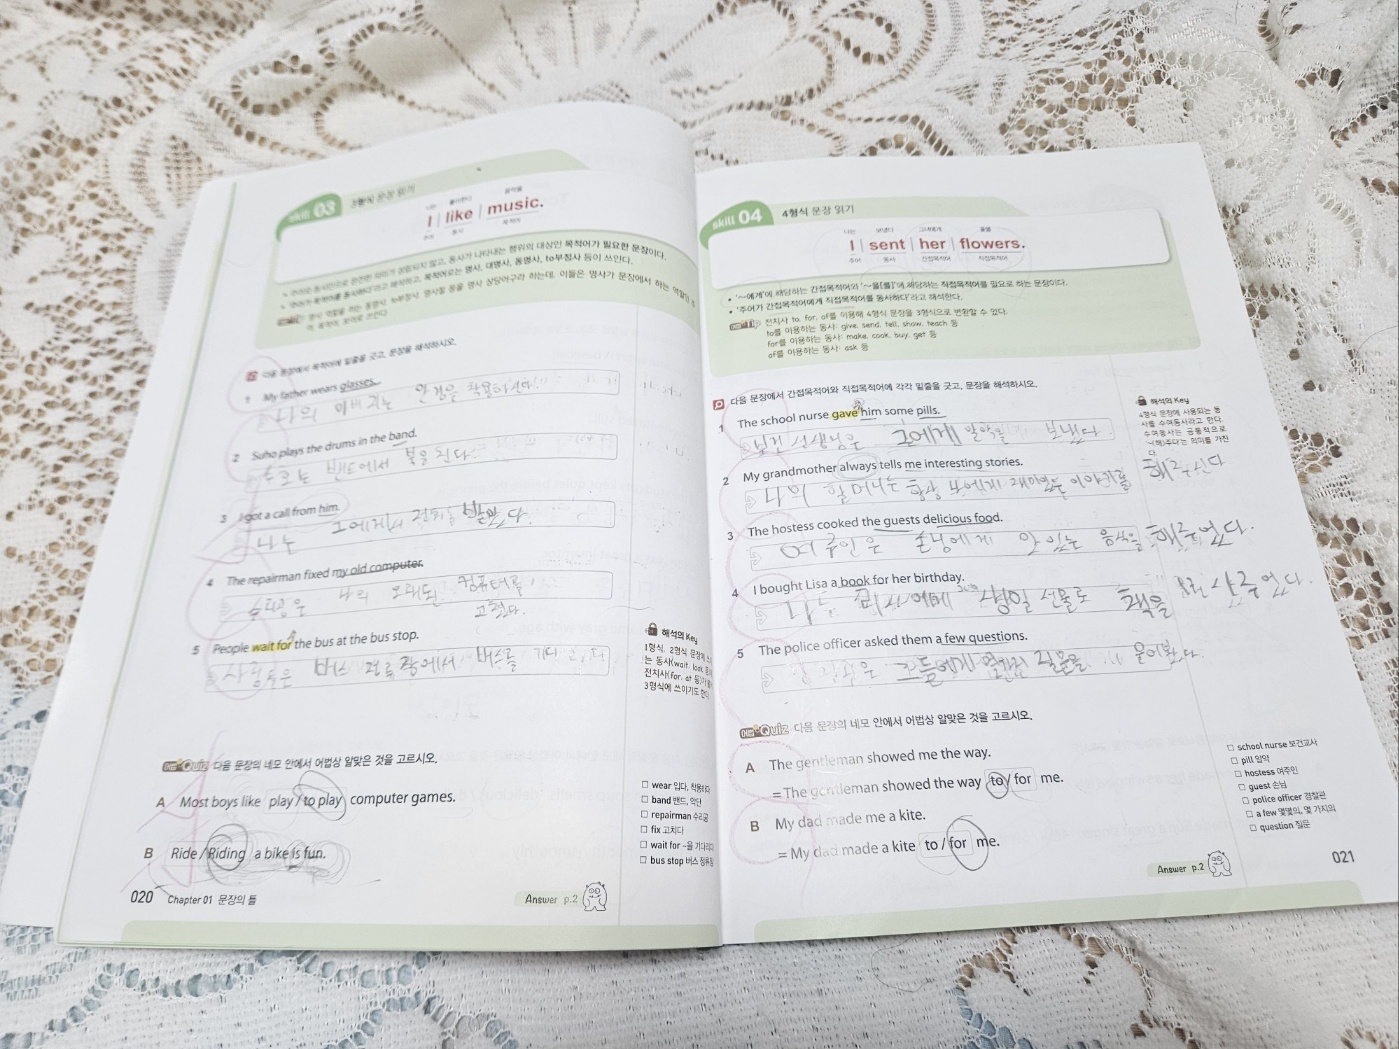 skill 03 3형식 문장 읽기
나는 좋아한다 음악을
I like music.
주어 동사 목적어
주어와 동사만으로 완전한 의미가 성립되지 않고, 동사가 나타내는 행위의 대상인 목적어가 필요한 문장이다.
'주어가 목적어를 동사하다'라고 해석하고, 목적어로는 명사, 대명사, 동명사, to부정사 등이 쓰인다.
다음 문장에서 목적어에 밑줄을 긋고, 문장을 해석하시오.
1 My father wears glasses.
나의 아버지는 안경을 착용하신다.
2 Suho plays the drums in the band.
수호는 밴드에서 북을 친다.
3 I got a call from him.
나는 그에게서 전화를 받았다.
4 The repairman fixed my old computer.
수리공은 나의 오래된 컴퓨터를
고쳤다.
5 People wait for the bus at the bus stop.
사람들은 버스 정류장에서 버스를 기다린다
해석의 Key
1형식, 2형식 문장에
는 동사(wait, look 등)
전치사(for, at 등)
3형식에 쓰이기도 한다
어법 Quiz 다음 문장의 네모 안에서 어법상 알맞은 것을 고르시오.
A Most boys like play / to play computer games.
B Ride / Riding a bike is fun.
□ wear 입다, 착용하다
□ band 밴드, 악단
□ repairman 수리공
□ fix 고치다
□ wait for ~을 기다리다
□ bus stop 버스 정류장
020 Chapter 01 문장의 틀
Answer p.2
skill 04 4형식 문장 읽기
나는 보냈다 그녀에게 꽃을
I sent her flowers.
주어 동사 간접목적어 직접목적어
• '~에게'에 해당하는 간접목적어와 '~을[를]'에 해당하는 직접목적어를 필요로 하는 문장이다.
• '주어가 간접목적어에게 직접목적어를 동사하다'라고 해석한다.
전치사 to, for, of를 이용해 4형식 문장을 3형식으로 변환할 수 있다.
to를 이용하는 동사: give, send, tell, show, teach 등
for를 이용하는 동사: make, cook, buy, get 등
of를 이용하는 동사: ask 등
다음 문장에서 간접목적어와 직접목적어에 각각 밑줄을 긋고, 문장을 해석하시오.
1 The school nurse gave him some pills.
보건 선생님은 그에게 알약을 보냈다
2 My grandmother always tells me interesting stories.
나의 할머니는 항상 나에게 재미있는 이야기를 해주신다
3 The hostess cooked the guests delicious food.
여주인은 손님에게 맛있는 음식을 해주었다.
4 I bought Lisa a book for her birthday.
나는 리사에게 생일 선물로 책을 사주었다.
5 The police officer asked them a few questions.
경찰관은 그들에게 몇가지 질문을 물어봤다.
해석의 Key
4형식 문장에 사용되는 동
사를 수여동사라고 한다.
수여동사는 공통적으로
'~(해)주다'는 의미를 가진
다.
어법 Quiz 다음 문장의 네모 안에서 어법상 알맞은 것을 고르시오.
A The gentleman showed me the way.
= The gentleman showed the way to / for me.
B My dad made me a kite.
= My dad made a kite to / for me.
□ school nurse 보건교사
□ pill 알약
□ hostess 여주인
□ guest 손님
□ police officer 경찰관
□ a few 몇몇의, 몇 가지의
□ question 질문
Answer p.2
021